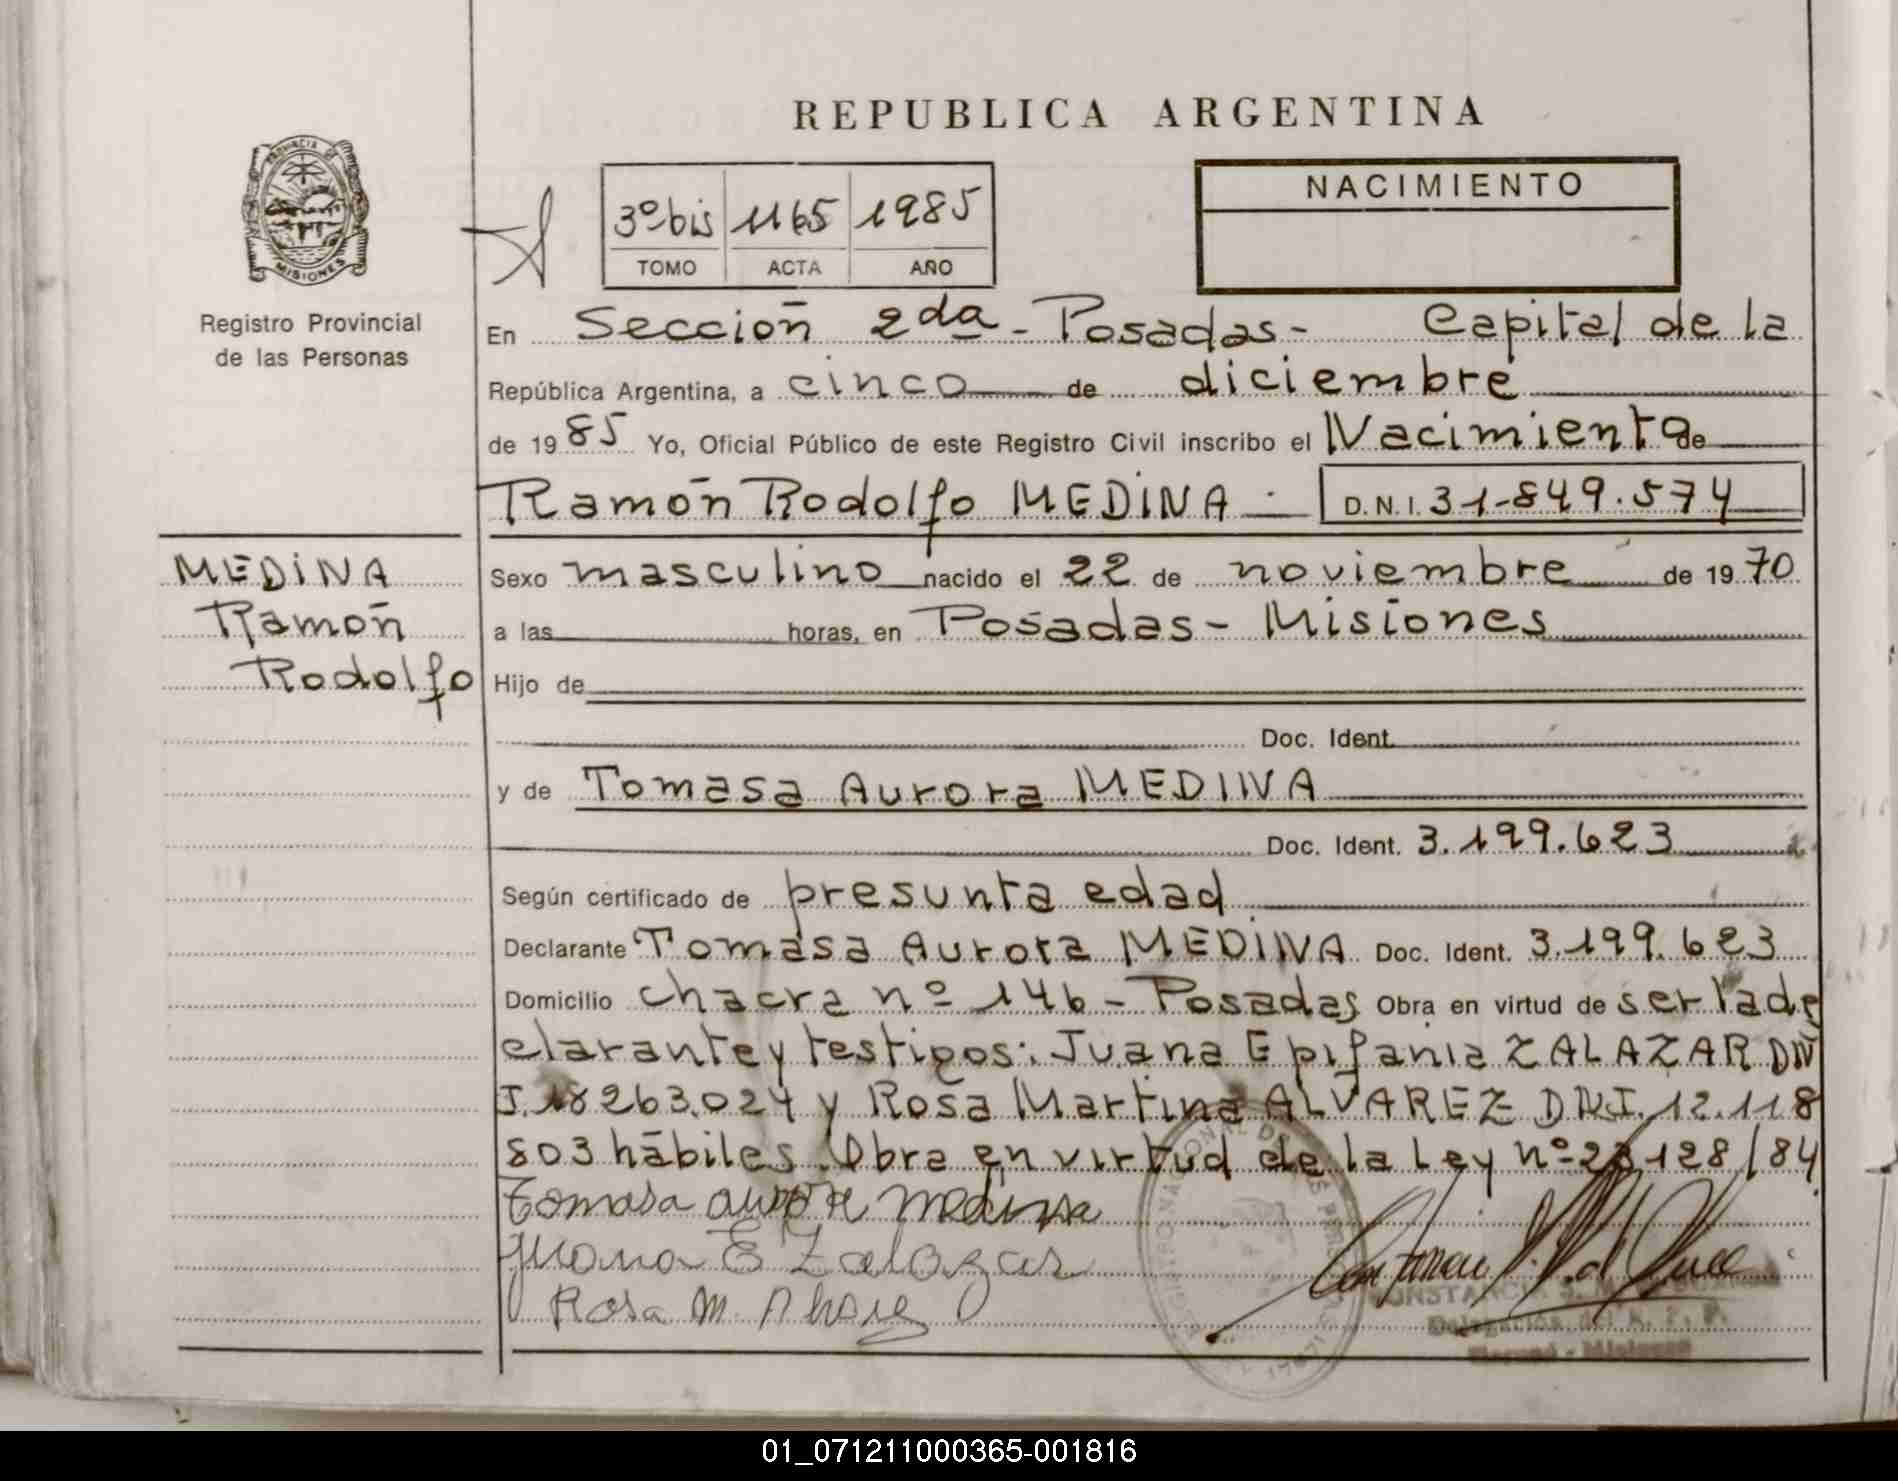 REPUBLICA ARGENTINA
PROVINCIA DE
MISIONES
Registro Provincial
de las Personas
3º bis 1165 1985
TOMO ACTA AÑO
NACIMIENTO
En Sección 2da - Posadas - Capital de la
República Argentina, a cinco de diciembre
de 1985 Yo, Oficial Público de este Registro Civil inscribo el Nacimiento de
Ramón Rodolfo MEDINA - D.N.I. 31-849.574
MEDINA
Ramón
Rodolfo
Sexo masculino nacido el 22 de noviembre de 1970
a las horas, en Posadas - Misiones
Hijo de
Doc. Ident.
y de Tomasa Aurora MEDINA
Doc. Ident. 3.199.623
Según certificado de presunta edad
Declarante Tomasa Aurora MEDINA Doc. Ident. 3.199.623
Domicilio chacra nº 146 - Posadas Obra en virtud de ser la de
clarante y testigos: Juana Epifania ZALAZAR DN
I. 18263.024 y Rosa Martina ALVAREZ DNI. 12.118
803 hábiles. Obra en virtud de la Ley nº 23128/84
Tomasa aurora medina
Juana E Zalazar
Rosa M. Alvarez
Delegación del R. P. P.
01_071211000365-001816